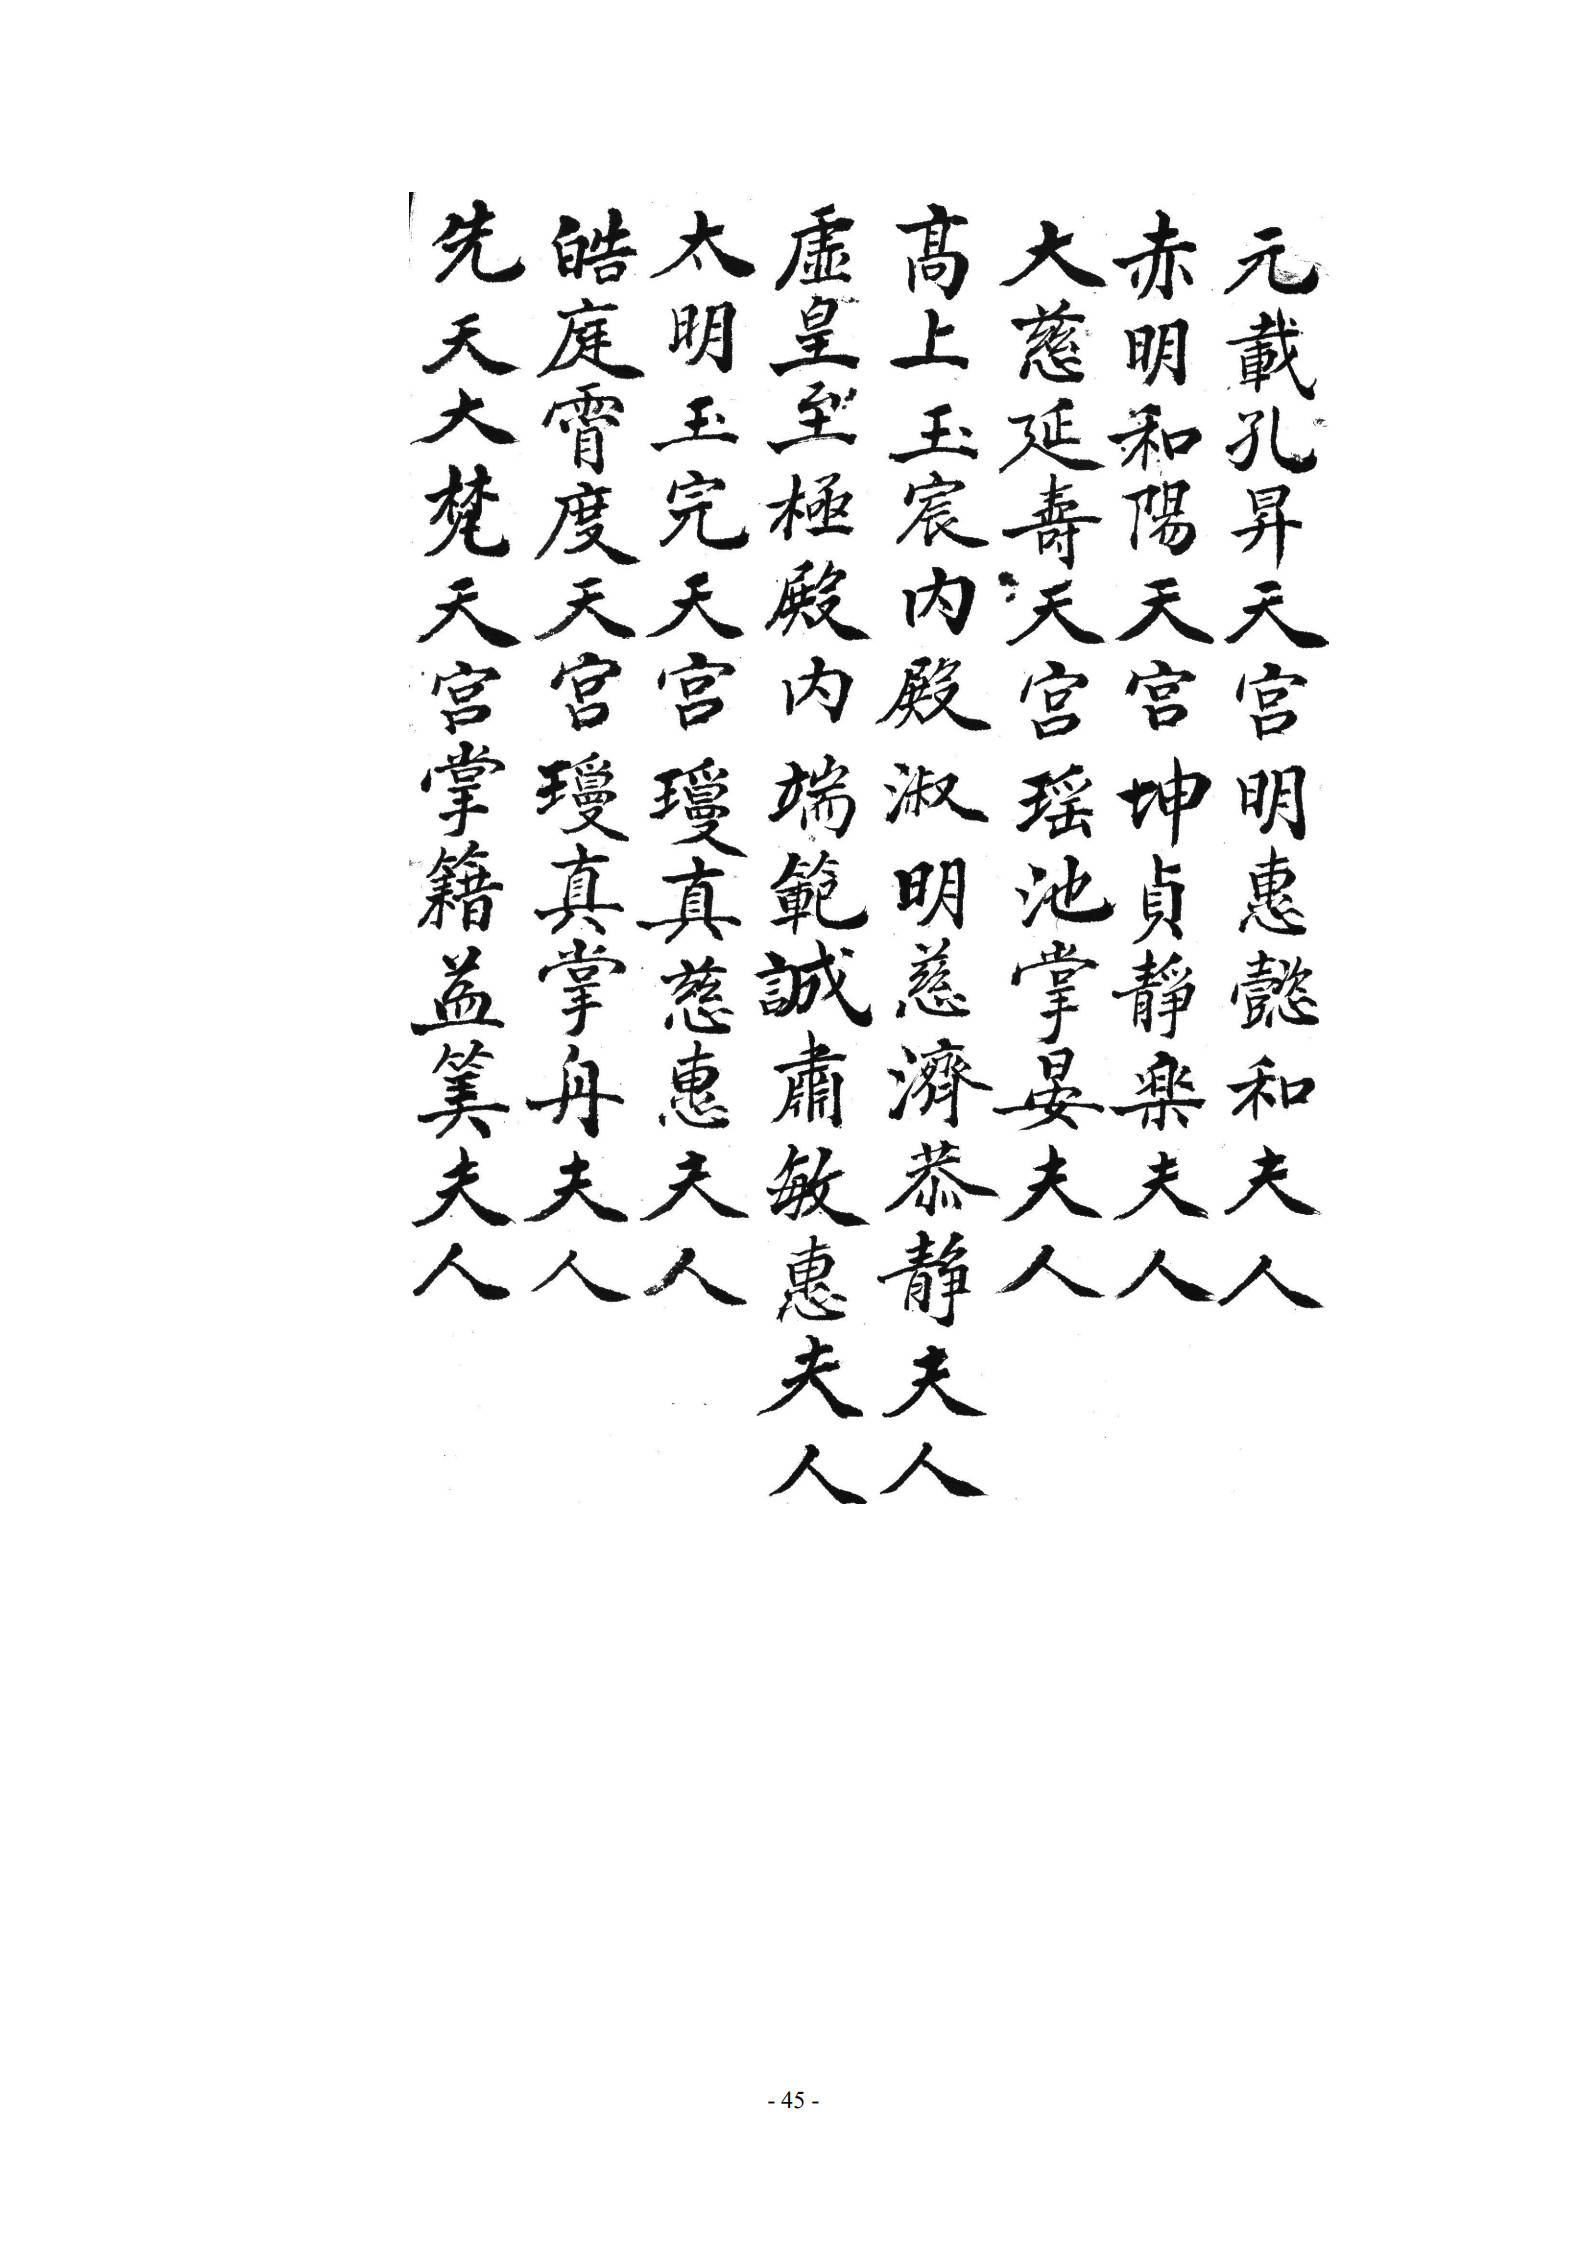 元載孔昇天宮明惠懿和夫人
赤明和陽天宮坤貞靜楽夫人
大慈延壽天宮瑶池掌晏夫人
髙上玉宸内殿淑明慈濟恭静夫人
虛皇至極殿内端範誠肅敏惠夫人
太明玉完天宮璦真慈惠夫人
皓庭霄度天宮璦真掌舟夫人
先天大梵天宮掌籍益筭夫人
- 45 -